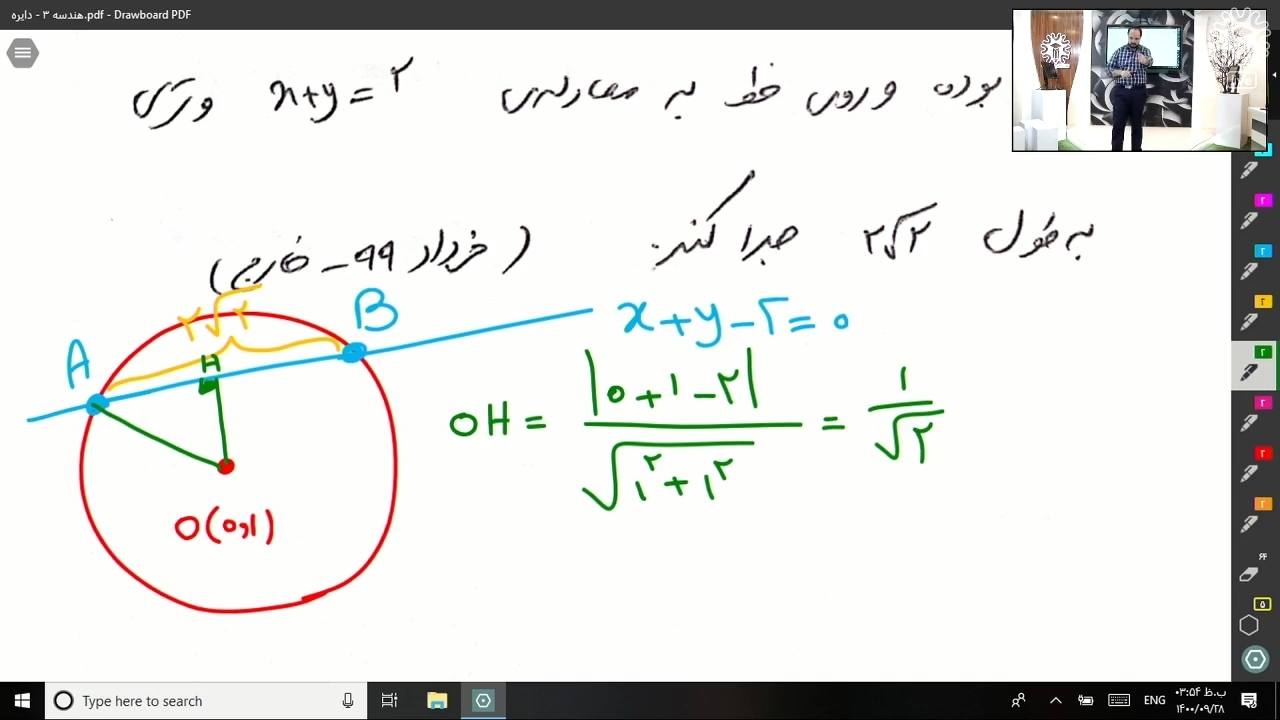 هندسه ۳ - دایره.pdf - Drawboard PDF
بوده و روی خط به معادله‌ی x+y=۲ وتری
به طول ۲√۲ جدا کند. (خرداد ۹۹ - خارج)
۲√۲
A
H
B
x+y-۲=۰
OH = |۰+۱-۲| / √(۱^۲+۱^۲) = ۱/√۲
O(۰,۱)
۲
۲
۲
۲
۲
۲
۲
۲
۶۴
۵
Type here to search
ENG
۰۳:۵۴ ب.ظ
۱۴۰۰/۰۹/۲۸